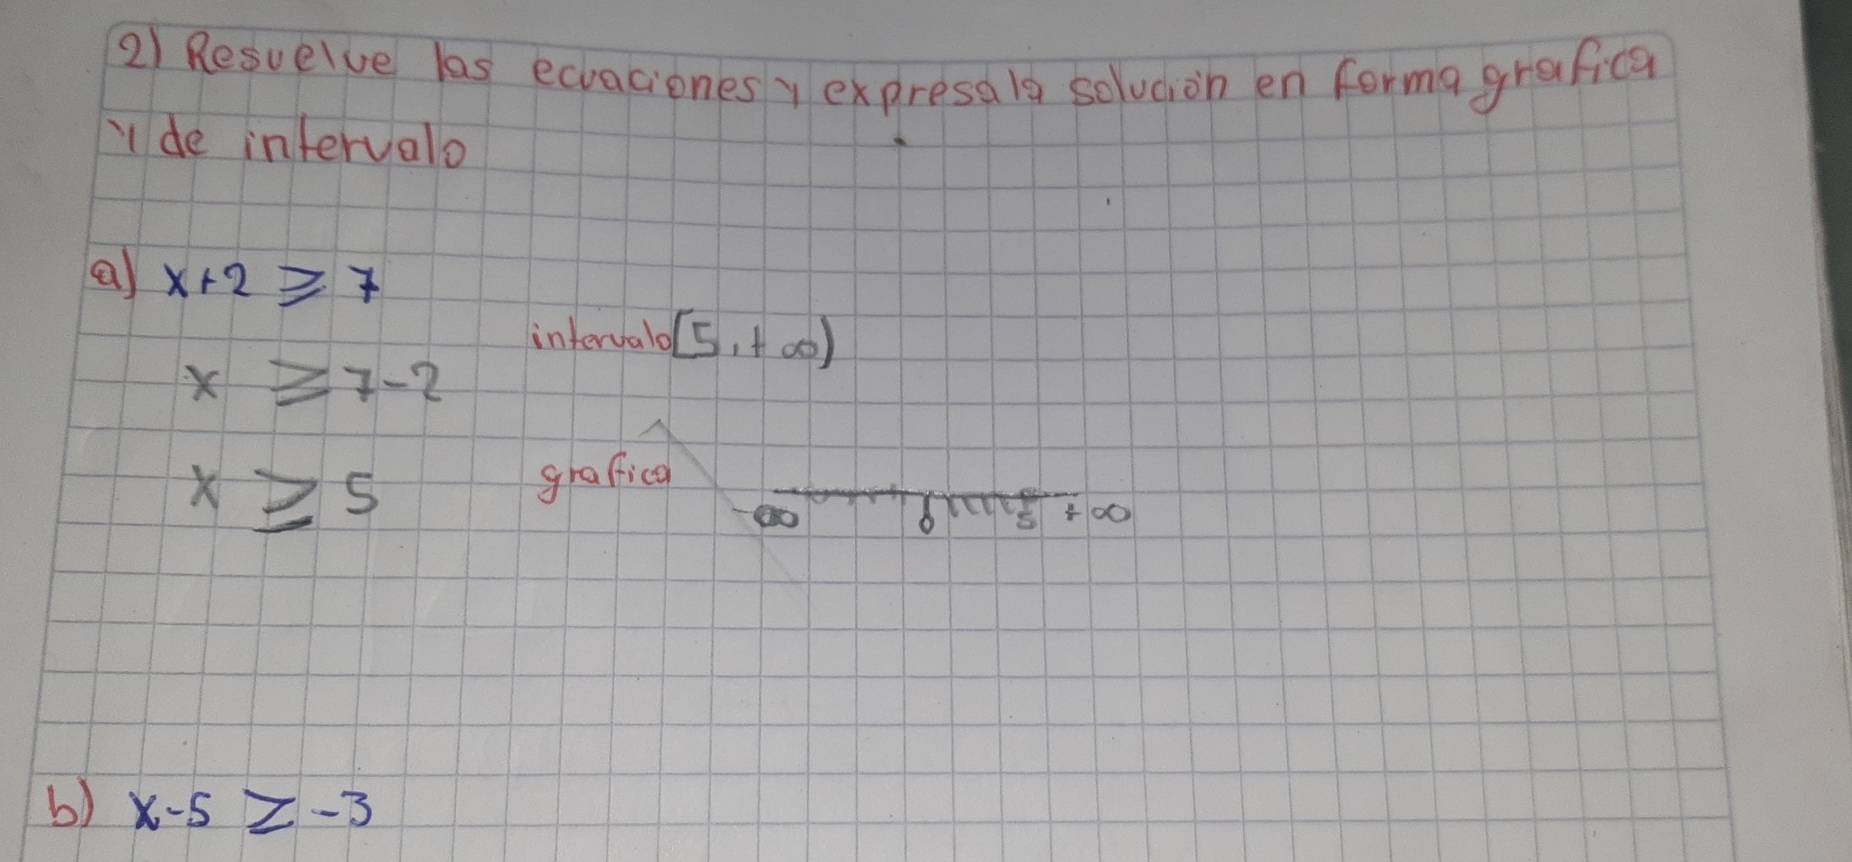 2) Resuelve las ecuaciones y expresa la solución en forma grafica
y de intervalo
a) x+2 ≥ 7
intervalo [5,+∞)
x ≥ 7-2
x ≥ 5 grafica
-∞ 0 5 +∞
b) x-5 ≥ -3